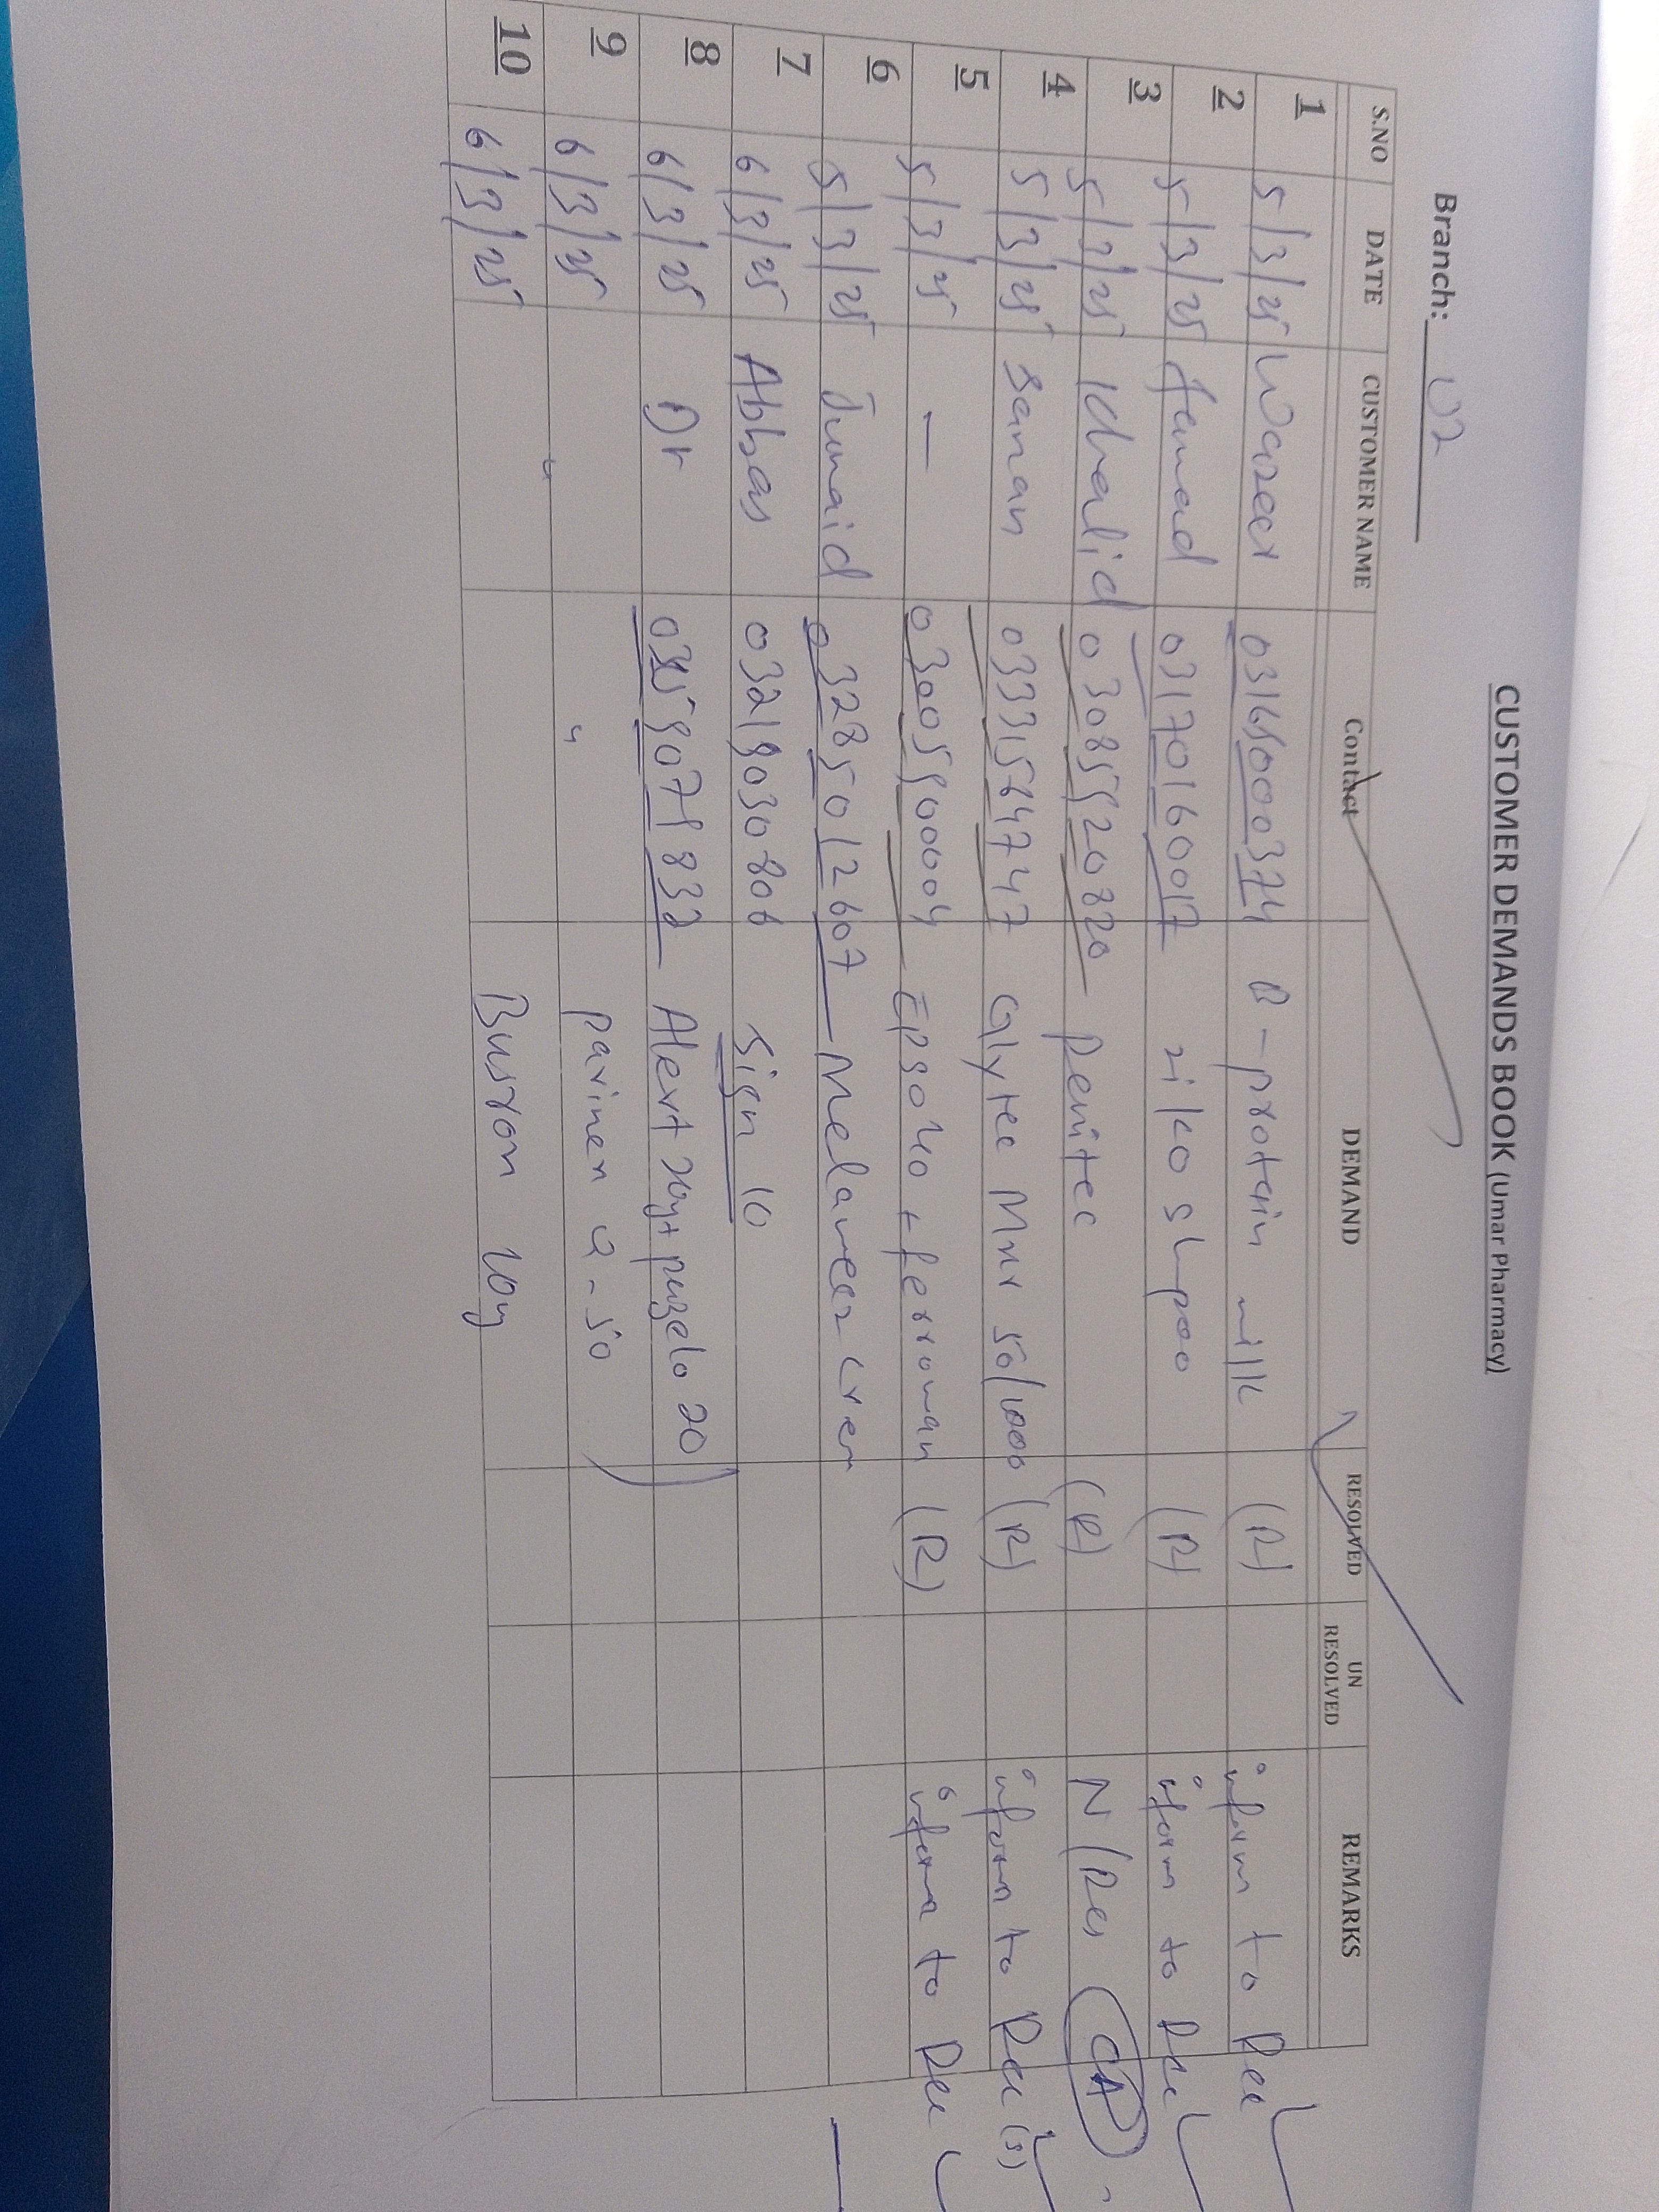 CUSTOMER DEMANDS BOOK (Umar Pharmacy)
Branch: U2
S.NO DATE CUSTOMER NAME Contact DEMAND RESOLVED UN RESOLVED REMARKS
1 5/3/25 Wazeer 03165000374 B-protein milk (R) inform to Rec
2 5/3/25 Hamad 03170160017 ziko shpoo (R) inform to Rec
3 5/3/25 Khalid 03085520820 Penitec (R) N/Res
4 5/3/25 Sanan 03331564747 Glytec Mnr 50/1000 (R) inform to Rec (s)
5 5/3/25 — 03005900004 Epso 40 + ferroman (R) inform to Rec
6 5/3/25 Junaid 03285012607 Melaneez crem
7 6/3/25 Abbas 03219030806 Sign 10
8 6/3/25 Dr Alert 20g+ puzelo 20
9 6/3/25 " " 50
10 6/3/25 Busron 10g